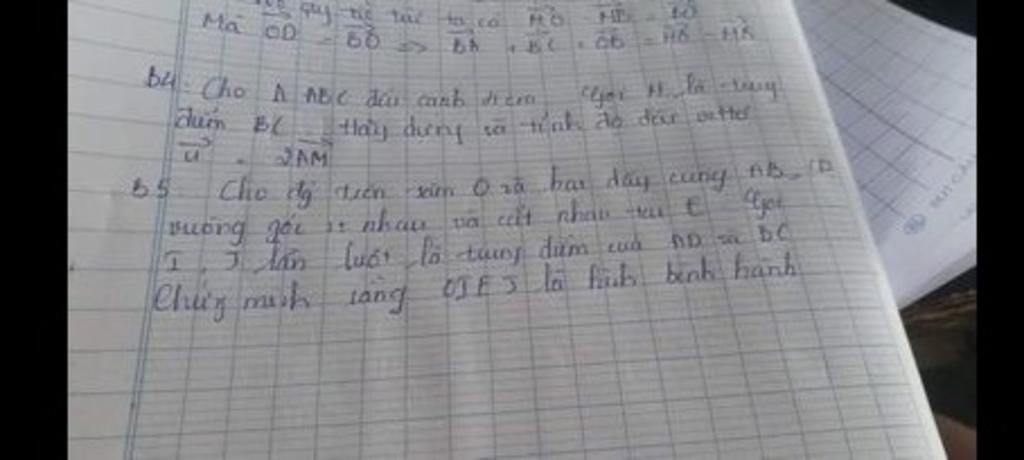 quy tắc ta có MD - MB = BD
Mà OD = BO => BA + BC + OB = MD - MB
B4. Cho Δ ABC đều cạnh Gọi M là trung
điểm BC. Hãy dựng và tính độ dài vectơ
u = 2AM
B5 Cho đg tròn tâm O và hai dây cung AB, CD
vuông góc nhau và cắt nhau tại E Gọi
I, J lần lượt là trung điểm của AD và BC
Chứng minh rằng OIEJ là hình bình hành